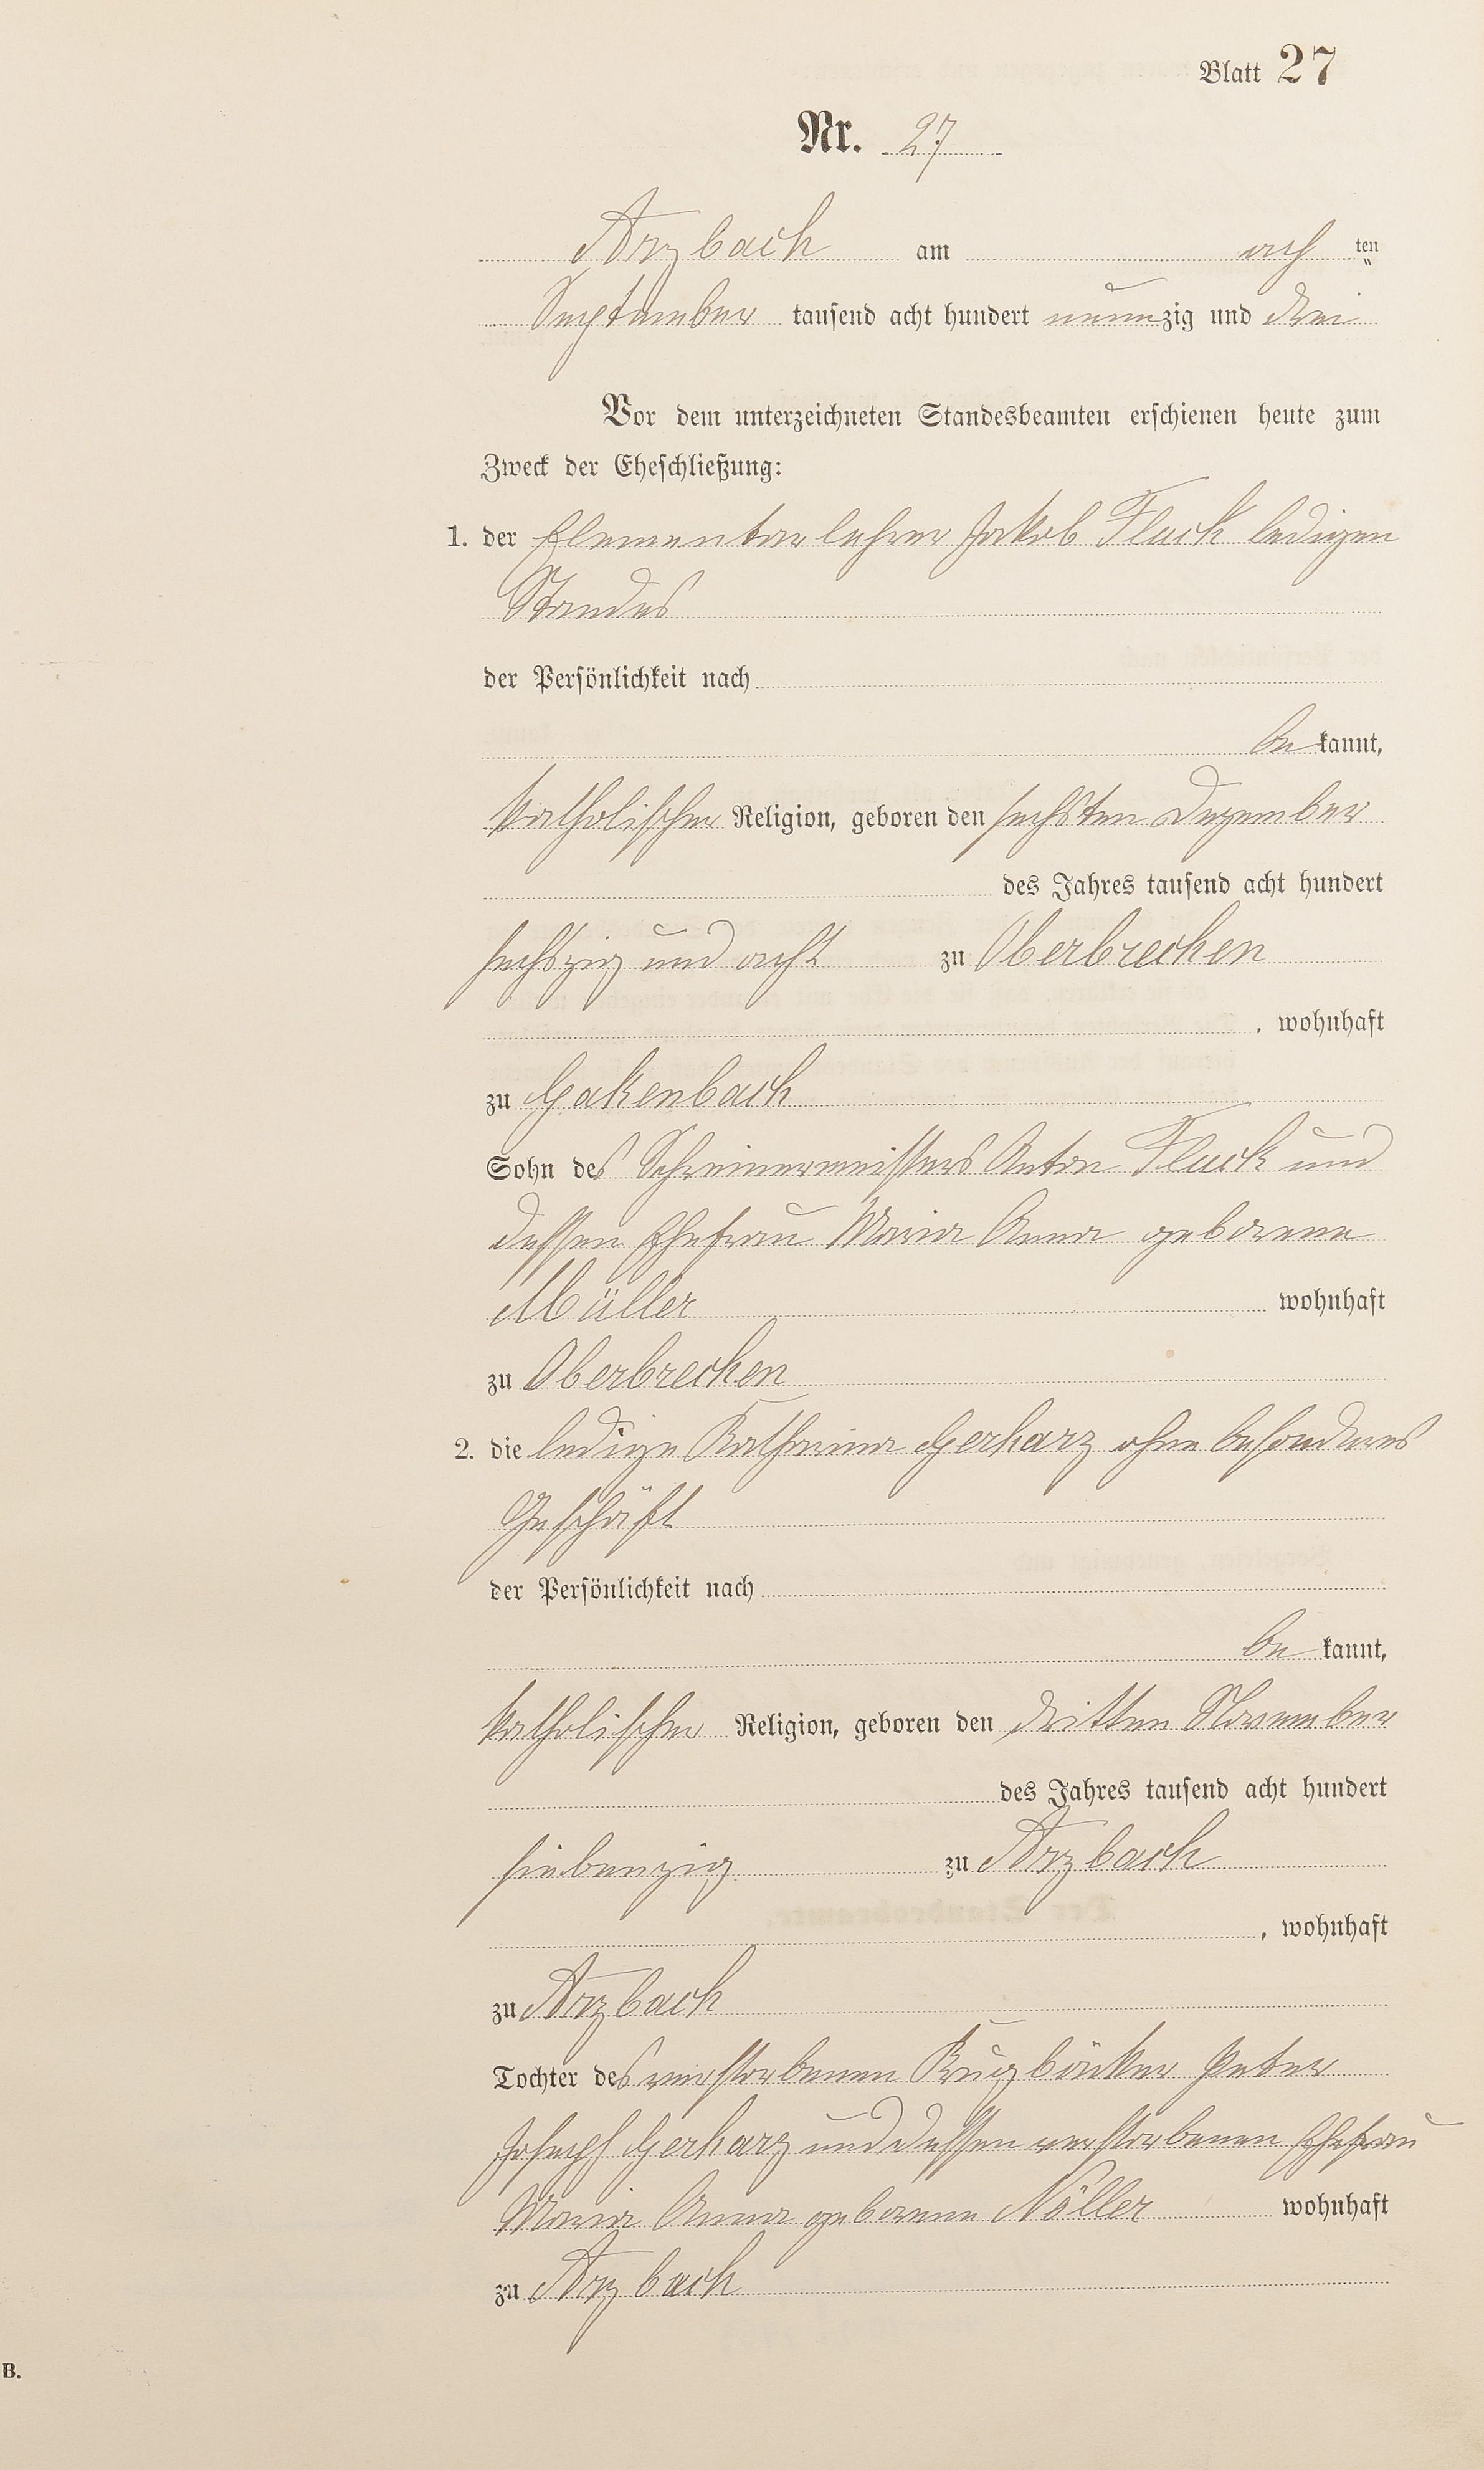 Blatt 27
Nr. 27
Arzbach am ach ten
September tausend acht hundert neunzig und drei
Vor dem unterzeichneten Standesbeamten erschienen heute zum
Zweck der Eheschließung:
1. der Elementarlehrer Jakob Fluck ledigen
Standes
der Persönlichkeit nach
be kannt,
katholischer Religion, geboren den sechsten Dezember
des Jahres tausend acht hundert
sechszig und acht zu Oberbrechen
, wohnhaft
zu Gakenbach
Sohn des Schreinermeisters Anton Fluck und
dessen Ehefrau Maria Anna geborene
Müller wohnhaft
zu Oberbrechen
2. die ledige Katharina Gerharz ohne besonderes
Geschäft
der Persönlichkeit nach
be kannt,
katholischer Religion, geboren den dritten November
des Jahres tausend acht hundert
siebenzig zu Arzbach
, wohnhaft
zu Arzbach
Tochter des verstorbenen Krugbäcker Peter
Joseph Gerharz und dessen verstorbenen Ehefrau
Maria Anna geborene Nöller wohnhaft
zu Arzbach
B.